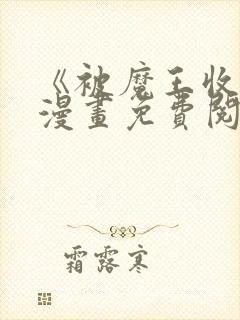 《被魔王收
漫畫免費閱
霜露寒